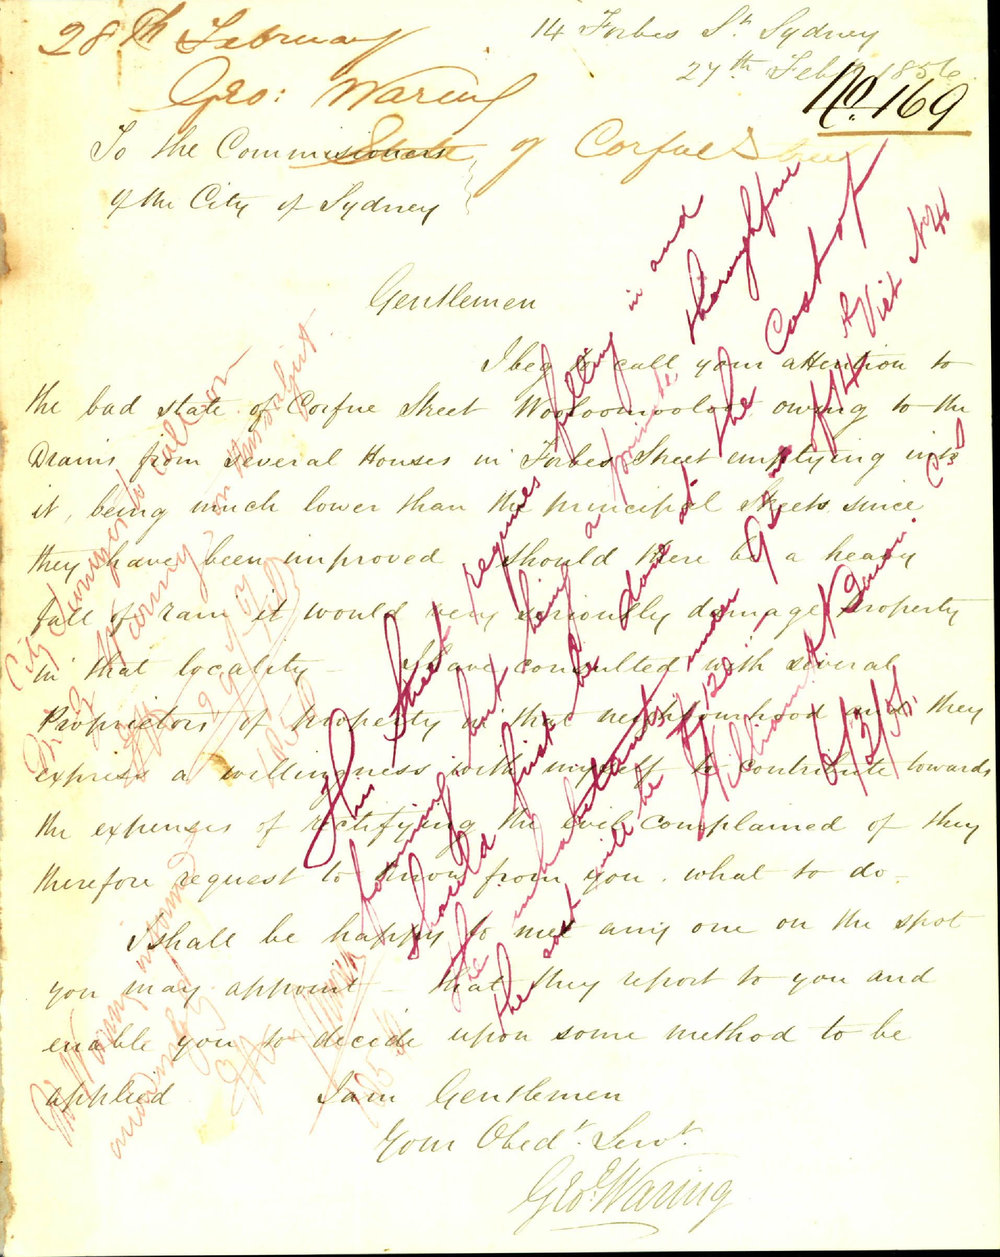 28th February
Geo: Waring
State of Corfue Street
No. 169
14 Forbes St. Sydney
27th Feby 1856
To the Commissioners
of the City of Sydney
Gentlemen
I beg to call your attention to
the bad state of Corfue Street Wooloomooloo owing to the
Drains from several Houses in Forbes Street emptying into
it, being much lower than the principal Streets since
they have been improved should there be a heavy
fall of rain it would very seriously damage Property
in that locality - I have consulted with several
Proprietors of property in that neighbourhood and they
express a willingness with myself to contribute towards
the expenses of rectifying the evil complained of they
therefore request to know from you what to do -
I shall be happy to meet any one on the spot
you may appoint - that they report to you and
enable you to decide upon some method to be
applied
I am Gentlemen
Your Obedt. Servt.
Geo. Waring
This Street requires filling in and
forming but being a private thoroughfare
should first be done at the Cost of
the inhabitants under 92 of 14 Vict No 41
the cost will be £120
6/3/56
City Surveyor to call on
Mr Waring on this subject
1856
Mr Waring
1856